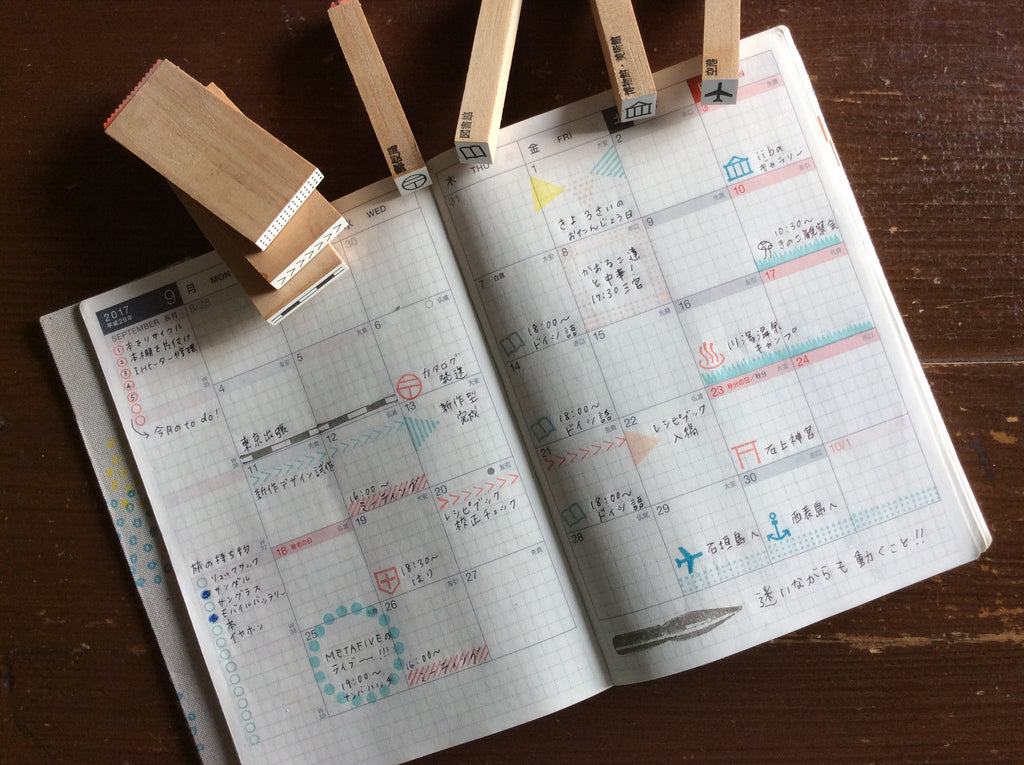 郵便局
図書館
博物館・美術館
空港
2017
平成29年
9 月 MON
WED
木 THU
金 FRI
SEPTEMBER 長月
① 本をリサイクル
② 本棚を片付け
③ IHヒーター修理
④
⑤
今月の to do!
8/28
30
31
1
大安
2
3
きよ ろさいの
おたんじょう日
iiba
ギャラリー
4
友引
5
先負
6
仏滅
7
8
9
10
東京出張
カタログ
発送
18:00〜
ドイツ語
かおるこ達
と中華!
19:30 三宮
10:30〜
きのこ観察会
11
12
13
14
15
16
17
新作デザイン試作
16:00〜
ミーティング
新作型
完成
18:00〜
ドイツ語
川湯温泉
キャンプ
18 敬老の日
19
20
21
22
23 秋分の日/秋分
24
18:30〜
はり
レシピブック
校正チェック
18:00〜
ドイツ語
レシピブック
入稿
石上神宮
25
26
27
28
29
30
10/1
METAFIVEの
ライブ〜!!!
19:00〜
ナンバハッチ
16:00〜
ミーティング
石垣島へ
西表島へ
旅の持ち物
リュックサック
サンダル
サングラス
モバイルバッテリー
本
イヤホン
迷いながらも動くこと!!